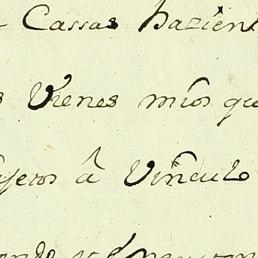 Cassas hazien
Vienes mios qu
jetos â Vinculo